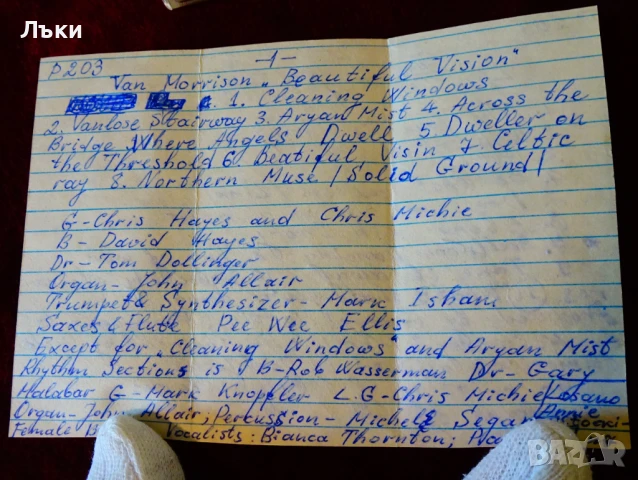 Лъки
P203
-1-
Van Morrison „Beautiful Vision"
1. Cleaning Windows
2. Vanlose Stairway 3. Aryan Mist 4. Across the
Bridge Where Angels Dwell 5. Dweller on
the Threshold 6. Beatiful Visin 7. Celtic
ray 8. Northern Muse /Solid Ground/
G-Chris Hayes and Chris Michie
B- David Hayes
Dr-Tom Dollinger
Organ-John Allair
Trumpet & Synthesizer- Mark Isham
Saxes & Flute Pee Wee Ellis
Except for „Cleaning Windows" and Aryan Mist
Rhythm Sections is B-Rob Wasserman Dr-Gary
Malabar G-Mark Knopfler L.G-Chris Michie
Organ-John Allair, Percussion-Michele Segan
Female Vocalists: Bianca Thornton;
BAZAR